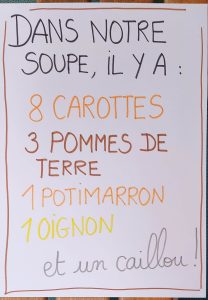 DANS NOTRE
SOUPE, IL Y A :
8 CAROTTES
3 POMMES DE
TERRE
1 POTIMARRON
1 OIGNON
et un caillou !